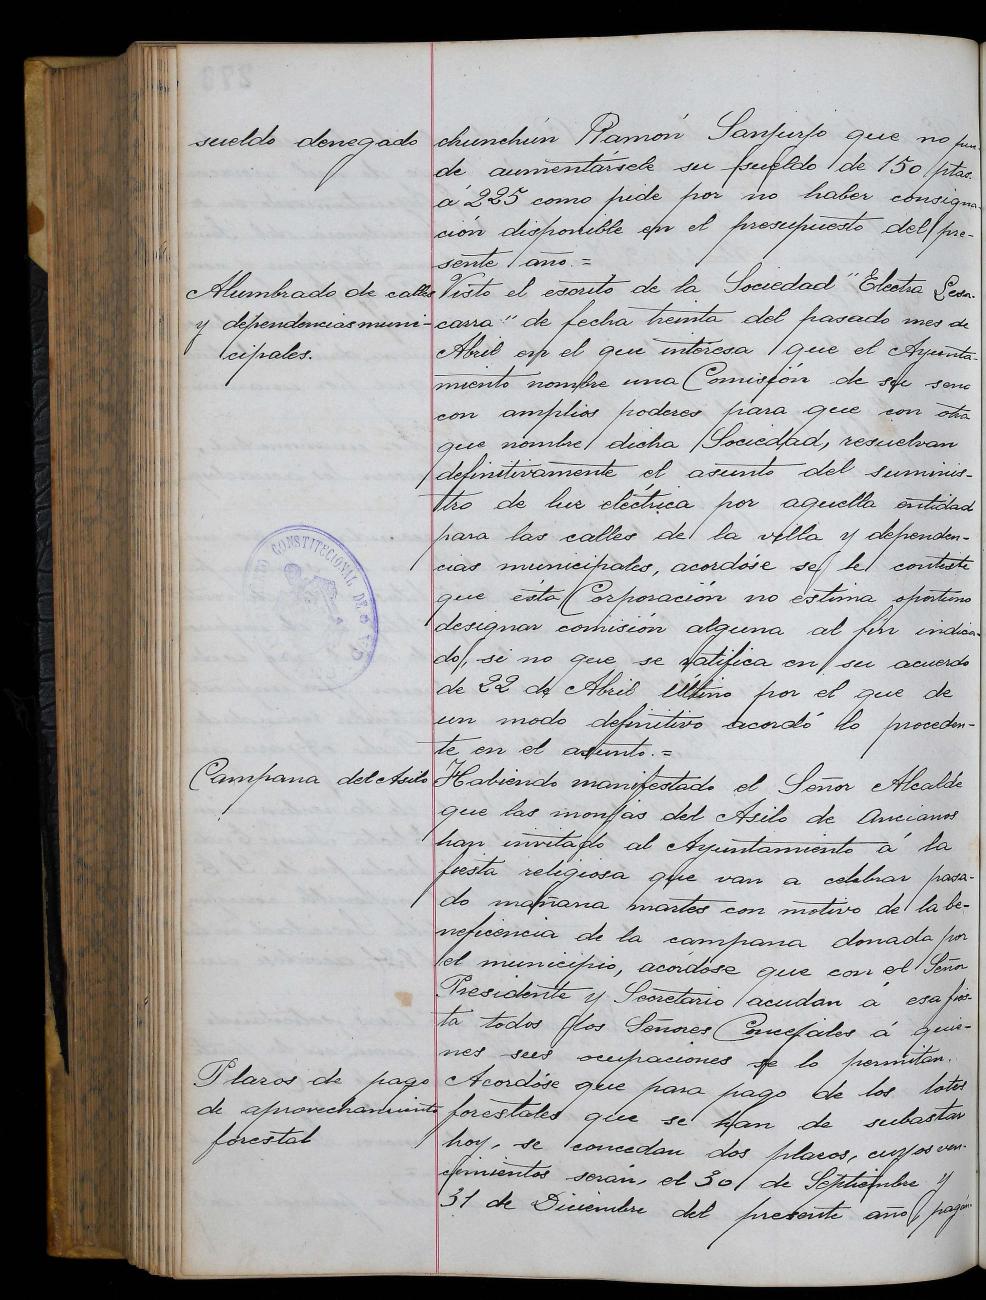 sueldo denegado
chunchún Ramón Sanjurjo que no pue-
de aumentársele su sueldo de 150 ptas.
á 225 como pide por no haber consigna-
ción disponible en el presupuesto del pre-
sente año.=
Alumbrado de calles
y dependencias muni-
cipales.
Visto el escrito de la Sociedad "Electra Lesa-
carra" de fecha treinta del pasado mes de
Abril en el que interesa que el Ayunta-
miento nombre una Comisión de su seno
con amplios poderes para que con otra
que nombre dicha Sociedad, resuelvan
definitivamente el asunto del suminis-
tro de luz eléctrica por aquella entidad
para las calles de la villa y dependen-
cias municipales, acordóse se le conteste
que ésta Corporación no estima oportuno
designar comisión alguna al fin indica-
do, si no que se ratifica en su acuerdo
de 22 de Abril último por el que de
un modo definitivo acordó lo proceden-
te en el asunto.=
CONSTITUCIONAL DE
Campana del Asilo
Habiendo manifestado el Señor Alcalde
que las monjas del Asilo de Ancianos
han invitado al Ayuntamiento á la
fiesta religiosa que van a celebrar pasa-
do mañana martes con motivo de la be-
neficencia de la campana donada por
el municipio, acordóse que con el Señor
Presidente y Secretario acudan á esa fies-
ta todos los Señores Concejales á quie-
nes sus ocupaciones se lo permitan.
Plazos de pago
de aprovechamiento
forestal
Acordóse que para pago de los lotes
forestales que se han de subastar
hoy, se concedan dos plazos, cuyos ven-
cimientos serán, el 30 de Septiembre y
31 de Diciembre del presente año, pagán-